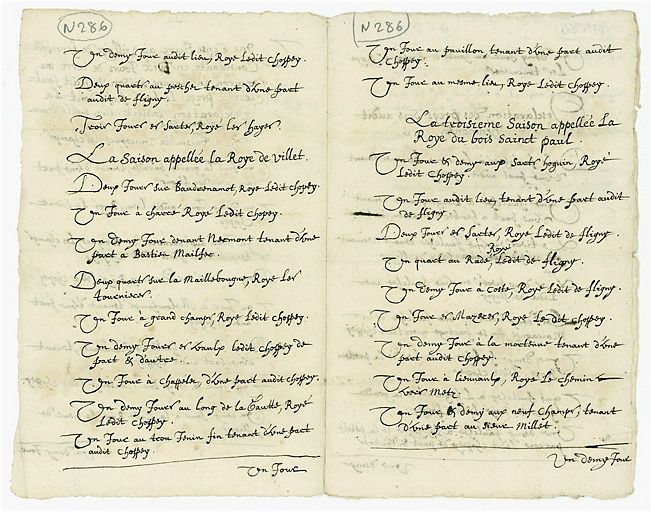 N 286
Un demy Jour audit lieu, Roye Ledit Choppey.
Deux quarts au pescher tenant d'une part
audit de fligny.
Trois Jours es sartes, Roye les hayes.
La Saison appellée la Roye de villet.
Deux Jours sur Baudrenamot, Roye Ledit Chopey.
Un Jour à charcé Royé Ledit Chopey.
Un demy Jour devant Nermont tenant d'une
part à Bastien Mailfer.
Deux quarts sur la Maillebougne, Roye Les
tournieres.
Un Jour à grand champs, Roye Ledit Choppey.
Un demy Jours es vaulx ledit Choppey de
part & d'autre.
Un Jour à Chappeles, d'une part audit Choppey.
Un demy Jours au long de la Roye
Ledit Choppey.
Un Jour au trou Jenin fin tenant d'une part
audit Choppey.
Un Jour
N 286
Un Jour au pavillon tenant d'une part audit
Choppey.
Un Jour au mesme lieu, Roye Ledit Choppey.
La troisieme Saison appellée La
Roye du bois Sainct paul
Un Jour & demy aux Sarts hoguin, Royé
Ledit Choppey.
Un Jour audit lieu, tenant d'une part audit
de fligny.
Deux Jours es Sartes, Roye Ledit de fligny.
Roye
Un quart au Rade, Ledit de fligny.
Un demy Jour à Coste, Roye Ledit de fligny.
Un Jour es Mazeres, Roye Le dit Choppey.
Un demy Jour à la morteune tenant d'une
part audit Choppey.
Un Jour à liennaulx, Royé Le chemin
vers Metz.
Un Jour & demy aux neuf Champs, tenant
d'une part au sieur Millet.
Un demy Jour